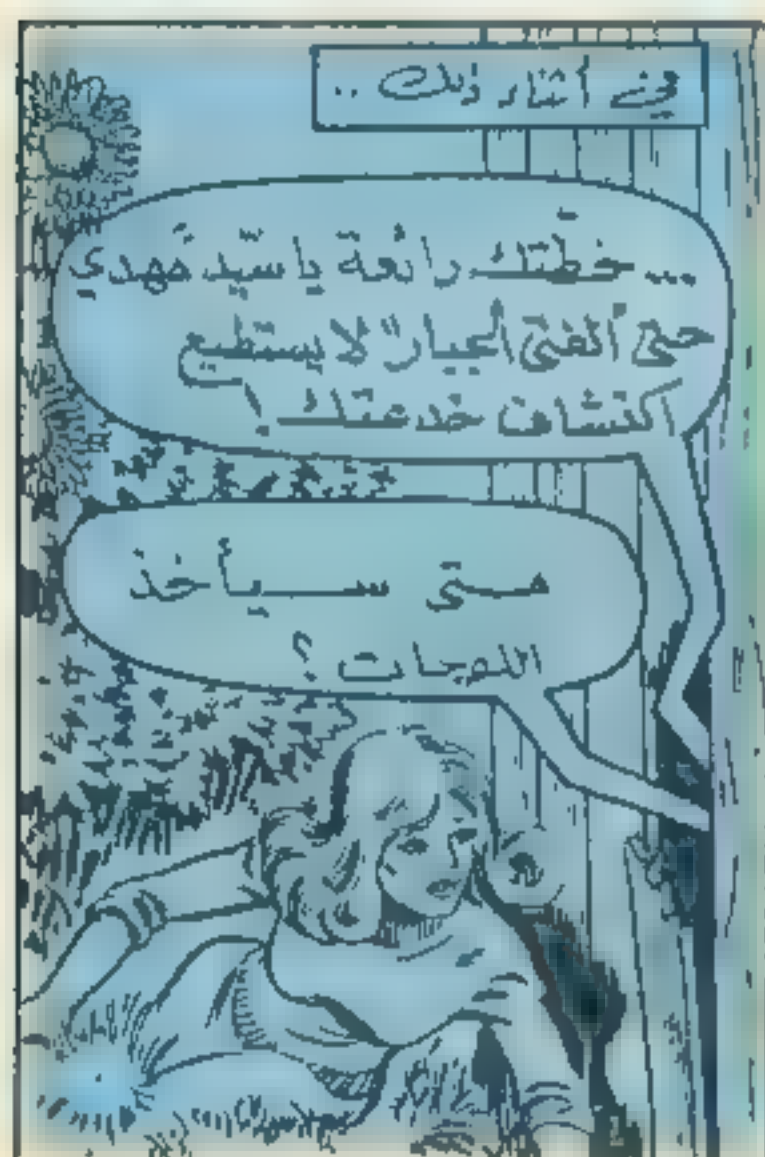 في أثناء ذلك ..
... خطّتك رائعة يا سيّد مَهدي
حتى "الفتى الجبار" لا يستطيع
اكتشاف خدعتك !
متى سيأخذ
اللوحات ؟